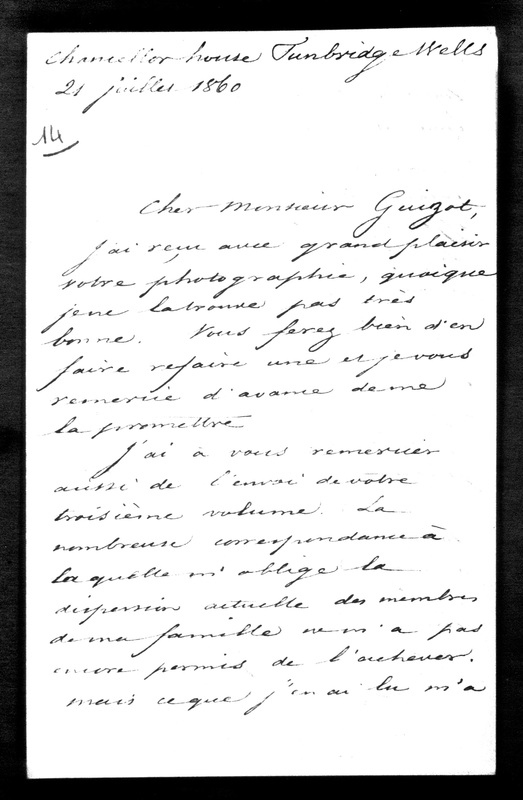 Chancellor house Tunbridge Wells
21 juillet 1860
14
Cher Monsieur Guizot,
J'ai reçu avec grand plaisir
votre photographie, quoique
je ne la trouve pas très
bonne. Vous ferez bien d'en
faire refaire une et je vous
remercie d'avance de me
la promettre
J'ai à vous remercier
aussi de l'envoi de votre
troisième volume. La
nombreuse correspondance à
laquelle m'oblige la
dispersion actuelle des membres
de ma famille ne m'a pas
encore permis de l'achever.
mais ce que j'en ai lu m'a